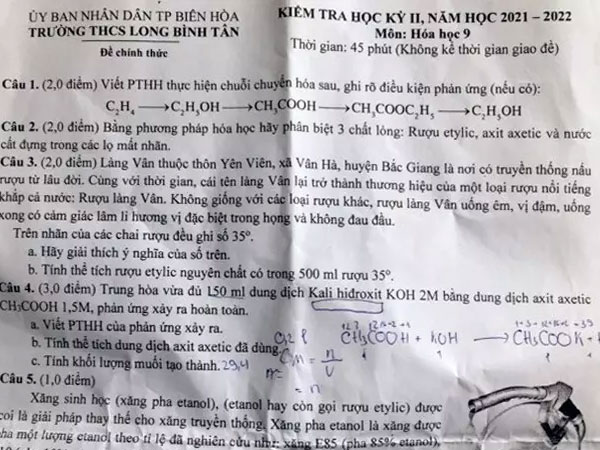 ỦY BAN NHÂN DÂN TP BIÊN HÒA
TRƯỜNG THCS LONG BÌNH TÂN
Đề chính thức
KIỂM TRA HỌC KỲ II, NĂM HỌC 2021 – 2022
Môn: Hóa học 9
Thời gian: 45 phút (Không kể thời gian giao đề)
Câu 1. (2,0 điểm) Viết PTHH thực hiện chuỗi chuyển hóa sau, ghi rõ điều kiện phản ứng (nếu có):
C₂H₄ → C₂H₅OH → CH₃COOH → CH₃COOC₂H₅ → C₂H₅OH
Câu 2. (2,0 điểm) Bằng phương pháp hóa học hãy phân biệt 3 chất lỏng: Rượu etylic, axit axetic và nước
cất đựng trong các lọ mất nhãn.
Câu 3. (2,0 điểm) Làng Vân thuộc thôn Yên Viên, xã Vân Hà, huyện Bắc Giang là nơi có truyền thống nấu
rượu từ lâu đời. Cùng với thời gian, cái tên làng Vân lại trở thành thương hiệu của một loại rượu nổi tiếng
khắp cả nước: Rượu làng Vân. Không giống với các loại rượu khác, rượu làng Vân uống êm, vị đậm, uống
xong có cảm giác lâm li hương vị đặc biệt trong họng và không đau đầu.
Trên nhãn của các chai rượu đều ghi số 35°.
a. Hãy giải thích ý nghĩa của số trên.
b. Tính thể tích rượu etylic nguyên chất có trong 500 ml rượu 35°.
Câu 4. (3,0 điểm) Trung hòa vừa đủ 150 ml dung dịch Kali hiđroxit KOH 2M bằng dung dịch axit axetic
CH₃COOH 1,5M, phản ứng xảy ra hoàn toàn.
a. Viết PTHH của phản ứng xảy ra.
CH₃COOH + KOH → CH₃COOK +
b. Tính thể tích dung dịch axit axetic đã dùng.
CM = n/V
c. Tính khối lượng muối tạo thành. 29,4
Câu 5. (1,0 điểm)
Xăng sinh học (xăng pha etanol), (etanol hay còn gọi rượu etylic) được
coi là giải pháp thay thế cho xăng truyền thống. Xăng pha etanol là xăng được
pha một lượng etanol theo tỉ lệ đã nghiên cứu như: xăng E85 (pha 85% etanol),